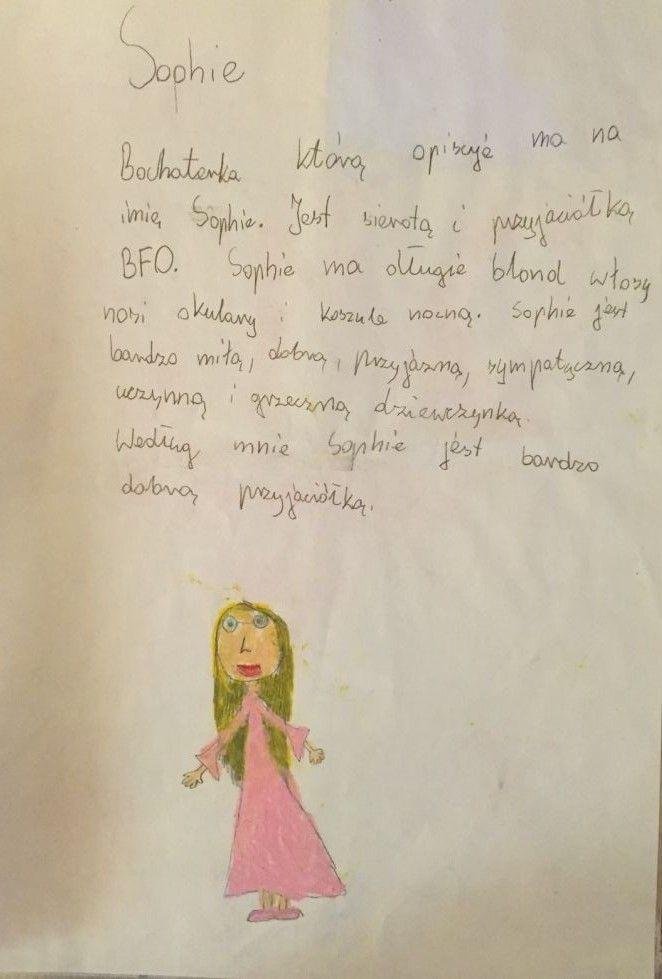 Sophie
Bochaterka którą opisuję ma na
imię Sophie. Jest sierotą i przyjaciółką
BFO. Sophie ma długie blond włosy
nosi okulary i koszule nocną. Sophie jest
bardzo miłą, dobrą, przyjazną, sympatyczną,
uczynną i grzeczną dziewczynką.
Według mnie Sophie jest bardzo
dobrą przyjaciółką.